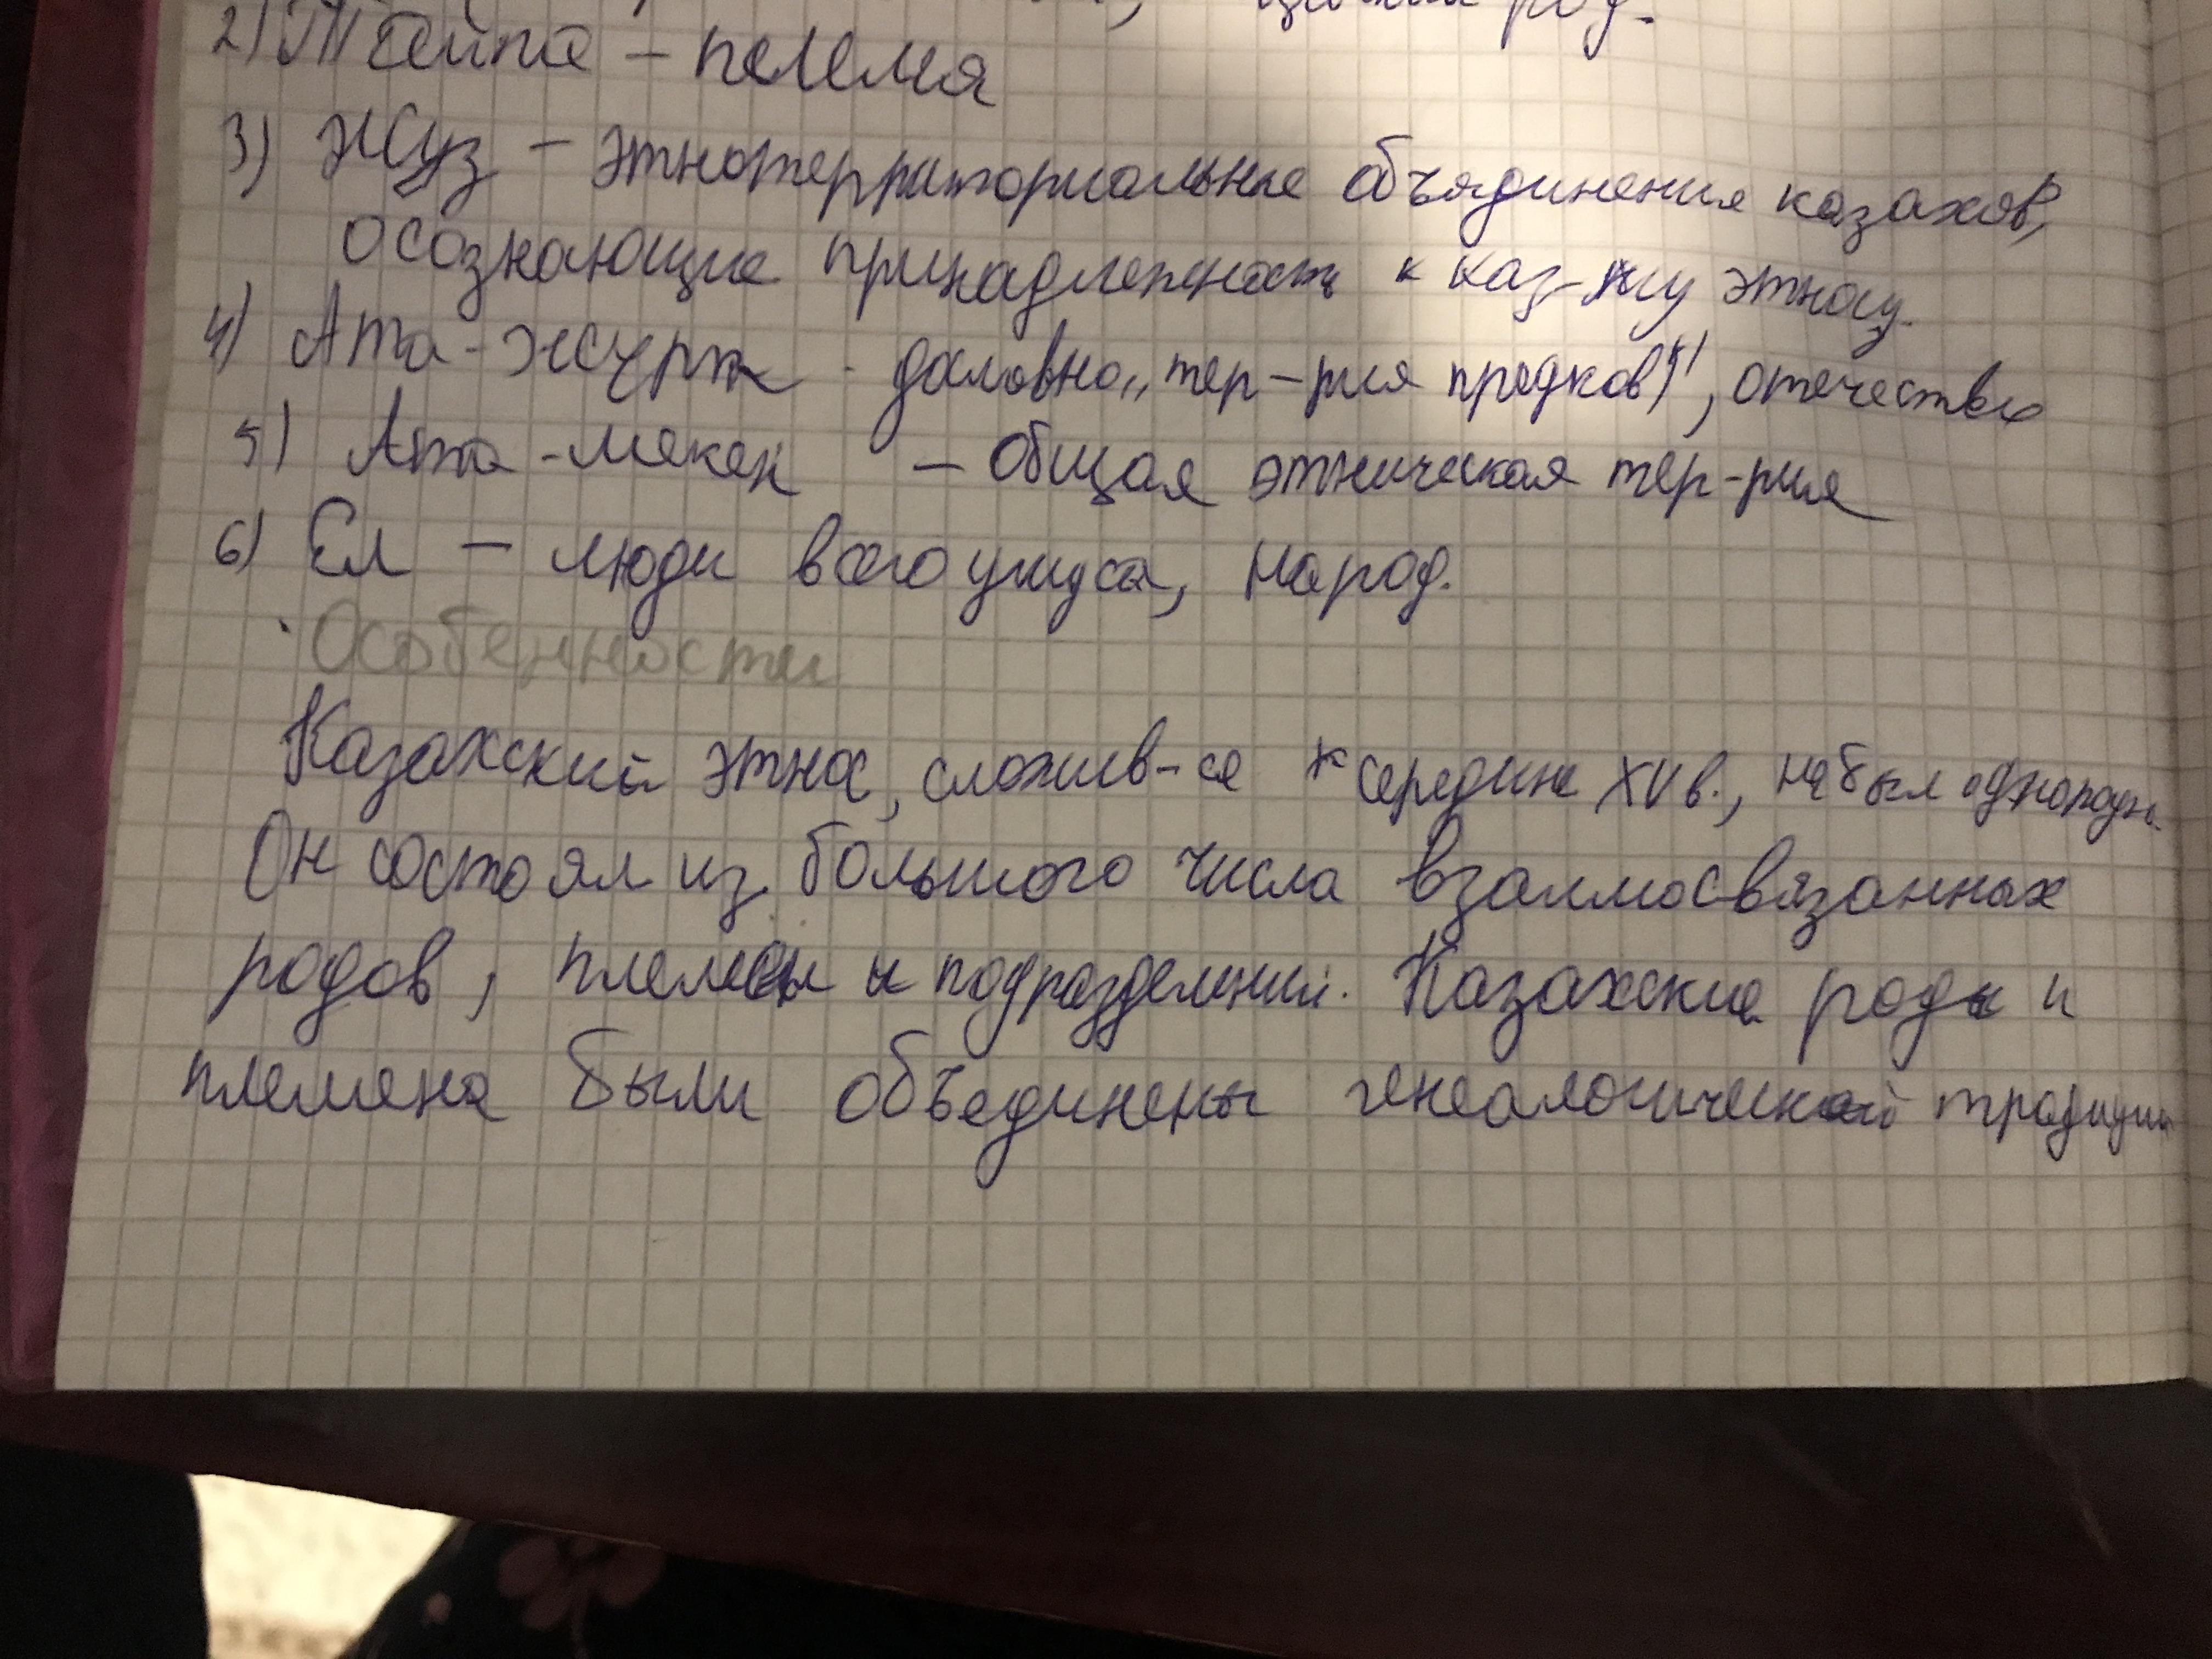 род.
2) Тайпа – пелемя
3) Жуз – этнотерриториальные объядинения казахов,
осознающие принадлежность к каз-му этносу.
4) Ата-журт - дословно „тер-рия предков", отечество
5) Ата-мекен – общая этническая тер-рия
6) Ел – люди всего улуса, народ.
· Особенности
Казахский этнос, сложив-ся к середине XV в., не был
Он состоял из большого числа взаимосвязанных
родов, племен и подразделений. Казахские роды и
племена были объединены генеалогической традиции